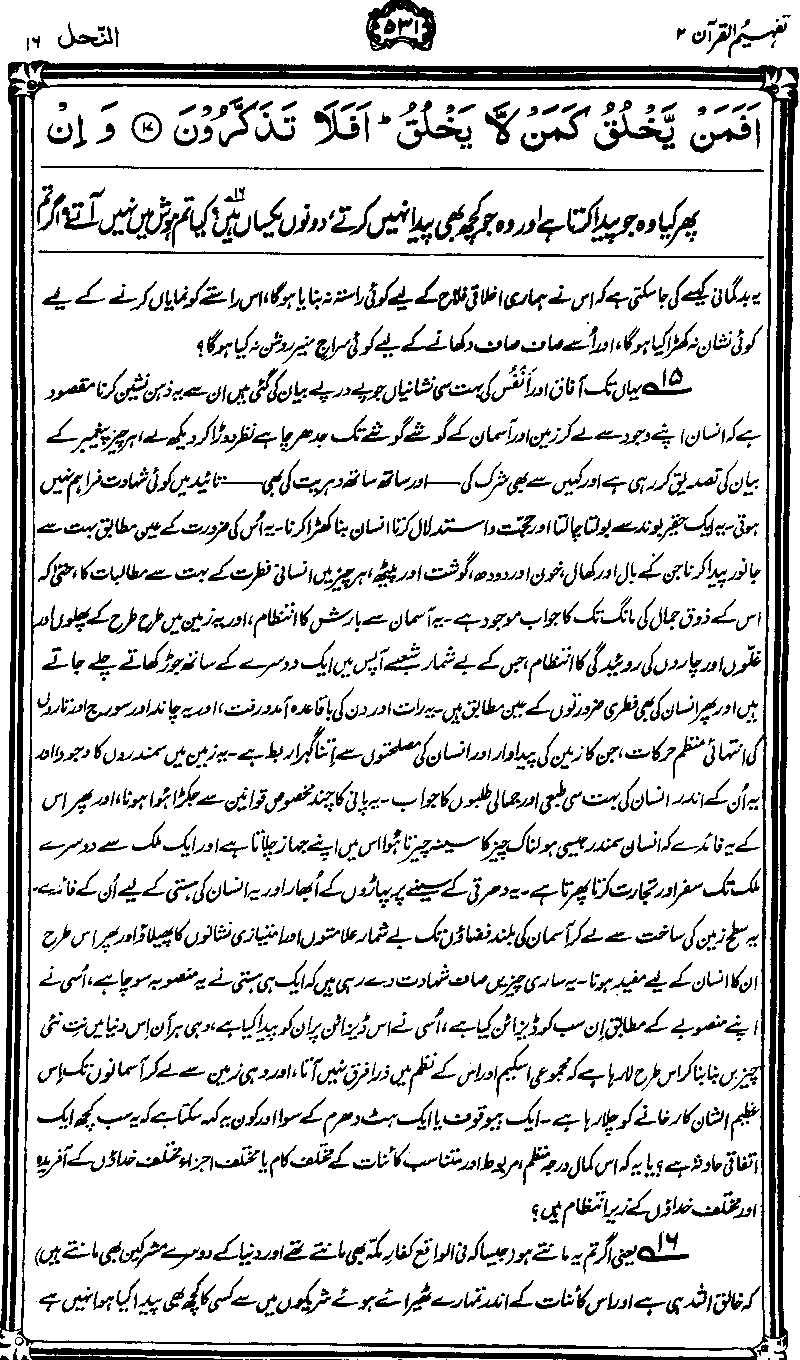 تفہیم القرآن ۲
۵۳۱
النّحل ۱۶
اَفَمَنْ يَّخْلُقُ كَمَنْ لَّا يَخْلُقُ ؕ اَفَلَا تَذَكَّرُوْنَ ﴿۱۷﴾ وَ اِنْ
پھر کیا وہ جو پیدا کرتا ہے اور وہ جو کچھ بھی پیدا نہیں کرتے، دونوں یکساں ہیں؟۱۶ کیا تم ہوش میں نہیں آتے؟ اگر تم
یہ بدگمانی کیسے کی جا سکتی ہے کہ اس نے ہماری اخلاقی فلاح کے لیے کوئی راستہ نہ بنایا ہوگا، اس راستے کو نمایاں کرنے کے لیے
کوئی نشان نہ کھڑا کیا ہوگا، اور اُسے صاف صاف دکھانے کے لیے کوئی سراجِ منیر روشن نہ کیا ہوگا؟
۱۵ یہاں تک آفاق اور اَنْفُس کی بہت سی نشانیاں جو پے در پے بیان کی گئی ہیں ان سے یہ ذہن نشین کرنا مقصود
ہے کہ انسان اپنے وجود سے لے کر زمین اور آسمان کے گوشے گوشے تک جدھر چاہے نظر دوڑا کر دیکھ لے، ہر چیز پیغمبر کے
بیان کی تصدیق کر رہی ہے اور کہیں سے بھی شرک کی —— اور ساتھ ساتھ دہریت کی بھی —— تائید میں کوئی شہادت فراہم نہیں
ہوتی۔ یہ ایک حقیر بوند سے بولتا چالتا اور حجت و استدلال کرتا انسان بنا کھڑا کرنا۔ یہ اُس کی ضرورت کے عین مطابق بہت سے
جانور پیدا کرنا جن کے بال اور کھال، خون اور دودھ، گوشت اور پیٹھ، ہر چیز میں انسانی فطرت کے بہت سے مطالبات کا، حتیٰ کہ
اس کے ذوقِ جمال کی مانگ تک کا جواب موجود ہے۔ یہ آسمان سے بارش کا انتظام، اور یہ زمین میں طرح طرح کے پھلوں اور
غلّوں اور چاروں کی روئیدگی کا انتظام، جس کے بے شمار شعبے آپس میں ایک دوسرے کے ساتھ جوڑ کھاتے چلے جاتے
ہیں اور پھر انسان کی بھی فطری ضرورتوں کے عین مطابق ہیں۔ یہ رات اور دن کی باقاعدہ آمد و رفت، اور یہ چاند اور سورج اور تاروں
کی انتہائی منظم حرکات، جن کا زمین کی پیداوار اور انسان کی مصلحتوں سے اِتنا گہرا ربط ہے۔ یہ زمین میں سمندروں کا وجود اور
یہ اُن کے اندر انسان کی بہت سی طبعی اور جمالی طلبوں کا جواب۔ یہ پانی کا چند مخصوص قوانین سے جکڑا ہوا ہونا، اور پھر اس
کے یہ فائدے کہ انسان سمندر جیسی ہولناک چیز کا سینہ چیرتا ہُوا اس میں اپنے جہاز چلاتا ہے اور ایک ملک سے دوسرے
ملک تک سفر اور تجارت کرتا پھرتا ہے۔ یہ دھرتی کے سینے پر پہاڑوں کے اُبھار اور یہ انسان کی ہستی کے لیے اُن کے فائدے۔
یہ سطح زمین کی ساخت سے لے کر آسمان کی بلند فضاؤں تک بے شمار علامتوں اور امتیازی نشانوں کا پھیلاؤ اور پھر اس طرح
ان کا انسان کے لیے مفید ہونا۔ یہ ساری چیزیں صاف شہادت دے رہی ہیں کہ ایک ہی ہستی نے یہ منصوبہ سوچا ہے، اُسی نے
اپنے منصوبے کے مطابق اِن سب کو ڈیزائن کیا ہے، اُسی نے اس ڈیزائن پر ان کو پیدا کیا ہے، وہی ہر آن اِس دنیا میں نِت نئی
چیزیں بنا بنا کر اس طرح لا رہا ہے کہ مجموعی اسکیم اور اس کے نظم میں ذرا فرق نہیں آتا، اور وہی زمین سے لے کر آسمانوں تک اِس
عظیم الشان کارخانے کو چلا رہا ہے۔ ایک بیوقوف یا ایک ہٹ دھرم کے سوا اور کون یہ کہہ سکتا ہے کہ یہ سب کچھ ایک
اتفاقی حادثہ ہے؟ یا یہ کہ اس کمال درجہ منظم، مربوط اور متناسب کائنات کے مختلف کام یا مختلف اجزاء مختلف خداؤں کے آفریدہ
اور مختلف خداؤں کے زیرِ انتظام ہیں؟
۱۶ یعنی اگر تم یہ مانتے ہو (جیسا کہ فی الواقع کفارِ مکہ بھی مانتے تھے اور دنیا کے دوسرے مشرکین بھی مانتے ہیں)
کہ خالق اللہ ہی ہے اور اس کائنات کے اندر تمہارے ٹھیرائے ہوئے شریکوں میں سے کسی کا کچھ بھی پیدا کیا ہوا نہیں ہے